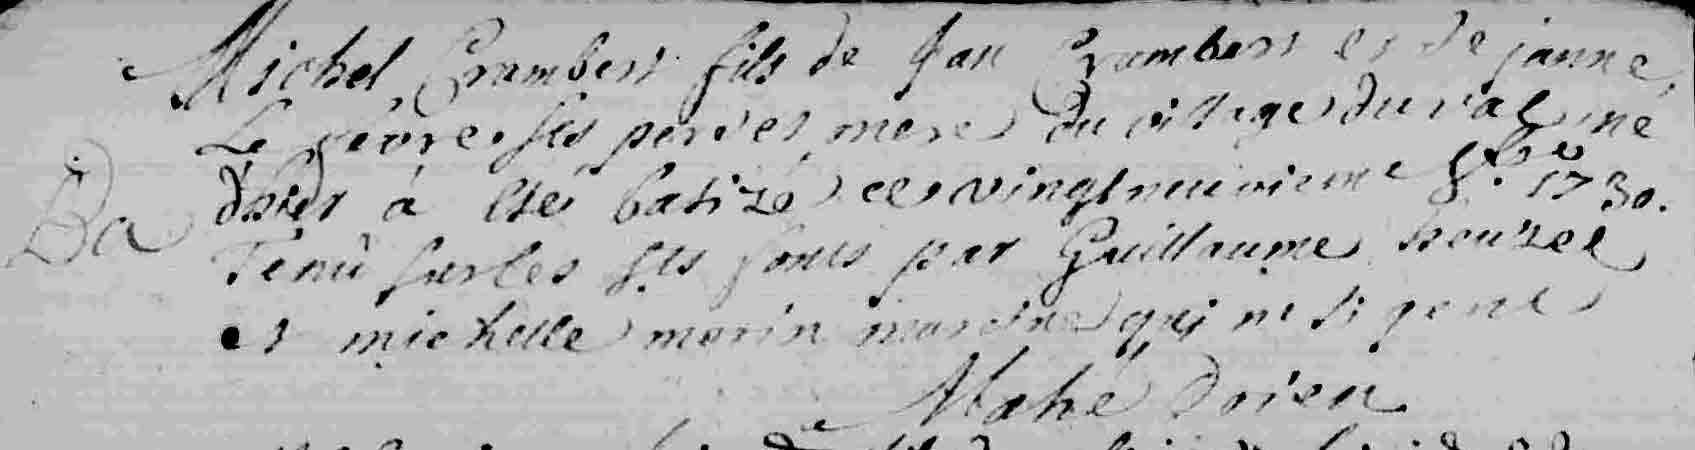 Michel Crambert fils de Jan Crambert et de janne
Le fèvre ses per et mere du village du val né
d'hier à été batizé ce vingt neuvieme 8.bre 1730.
Ba
Tenû sur les sts fonts par Guillaume houzel
et michelle morin maraine qui ne signent
Mahé doïen